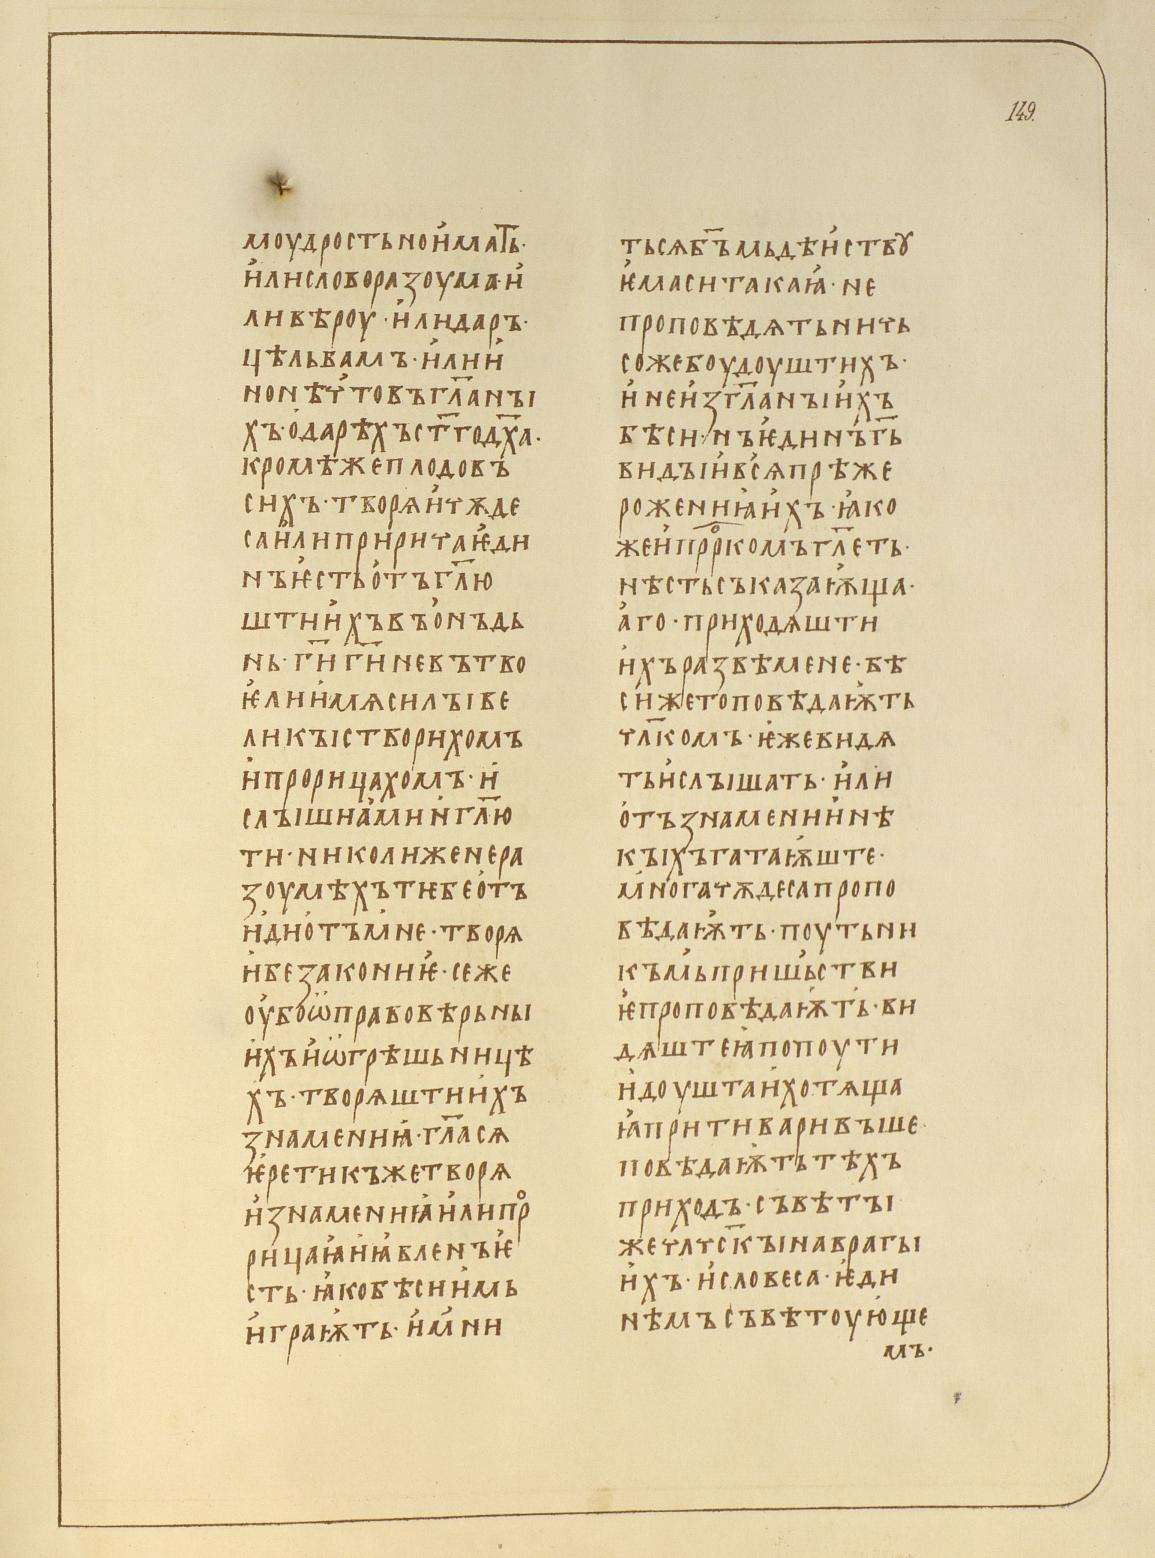 149.
моудростьноймат҃ь·
ӥлисловоразоума·ӥ
ливѣроу·ӥлидаръ·
цѣльбамъ·ӥлиӥ
нонѣчтовъгл҃анꙑ
хъ·одарѣхъст҃годх҃а·
кромѣжеплодовъ
сихъ·творѧйчѫде
саӥлипрӥричаѥди
нъѥстьотъгл҃ю
штиӥхъвъонъдь
нь·ги҃ги҃невътво
ѥлиӥмѧсилꙑве
ликꙑсᲅворихомъ
ӥпрорицахомъ·ӥ
слꙑшнамиӥгл҃ю
ти·николиженера
зоумѣхътебеотъ
ӥдиотъмне·творѧ
ӥбезакониѥ·сеже
оубоѡправовѣрьны
ӥхъӥѡгрѣшьницѣ
хъ·творѧштиӥхъ
знамениꙗ·гл҃асѧ
ѥретикъжетворѧ
ӥзнамениꙗӥлипро
рицаꙗӥꙗвленъѥ
сть·ꙗкобѣсиӥмь
ӥграѭть·ӥмни
тьсѧб҃ъмьдѣӥству
ѥмаситакаꙗ·не
проповѣдѧтьничь
сожебоудоуштихъ·
ӥнеӥзгл҃анꙑӥхъ
бѣси·нъѥдинъг҃ь
видꙑӥвсѧпрѣже
рожениꙗӥхъ·ꙗко
жеӥпрⷪ҇ркомъгл҃еть·
нѣстьсъказаѭща·
аго·приходѧшти
ӥхъразвѣмене·бѣ
сӥжетоповѣдаѭть
чл҃комъ·ѥжевидѧ
тьӥслꙑшать·ӥли
отъзнамениӥнѣ
кꙑхъгатаѭште·
многачѫдесапропо
вѣдаѭть·поутьни
къмьпришьстви
ѥпроповѣдаѭть·ви
дѧштеꙗпопоути
ӥдоуштаӥхотѧща
ꙗпритиваривъше·
повѣдаѭтьтѣхъ
приходъ·съвѣтꙑ
жечлчс҃кꙑнаврагы
ӥхъ·ӥсловеса·ѥди
нѣмъсъвѣтоующе
мъ·